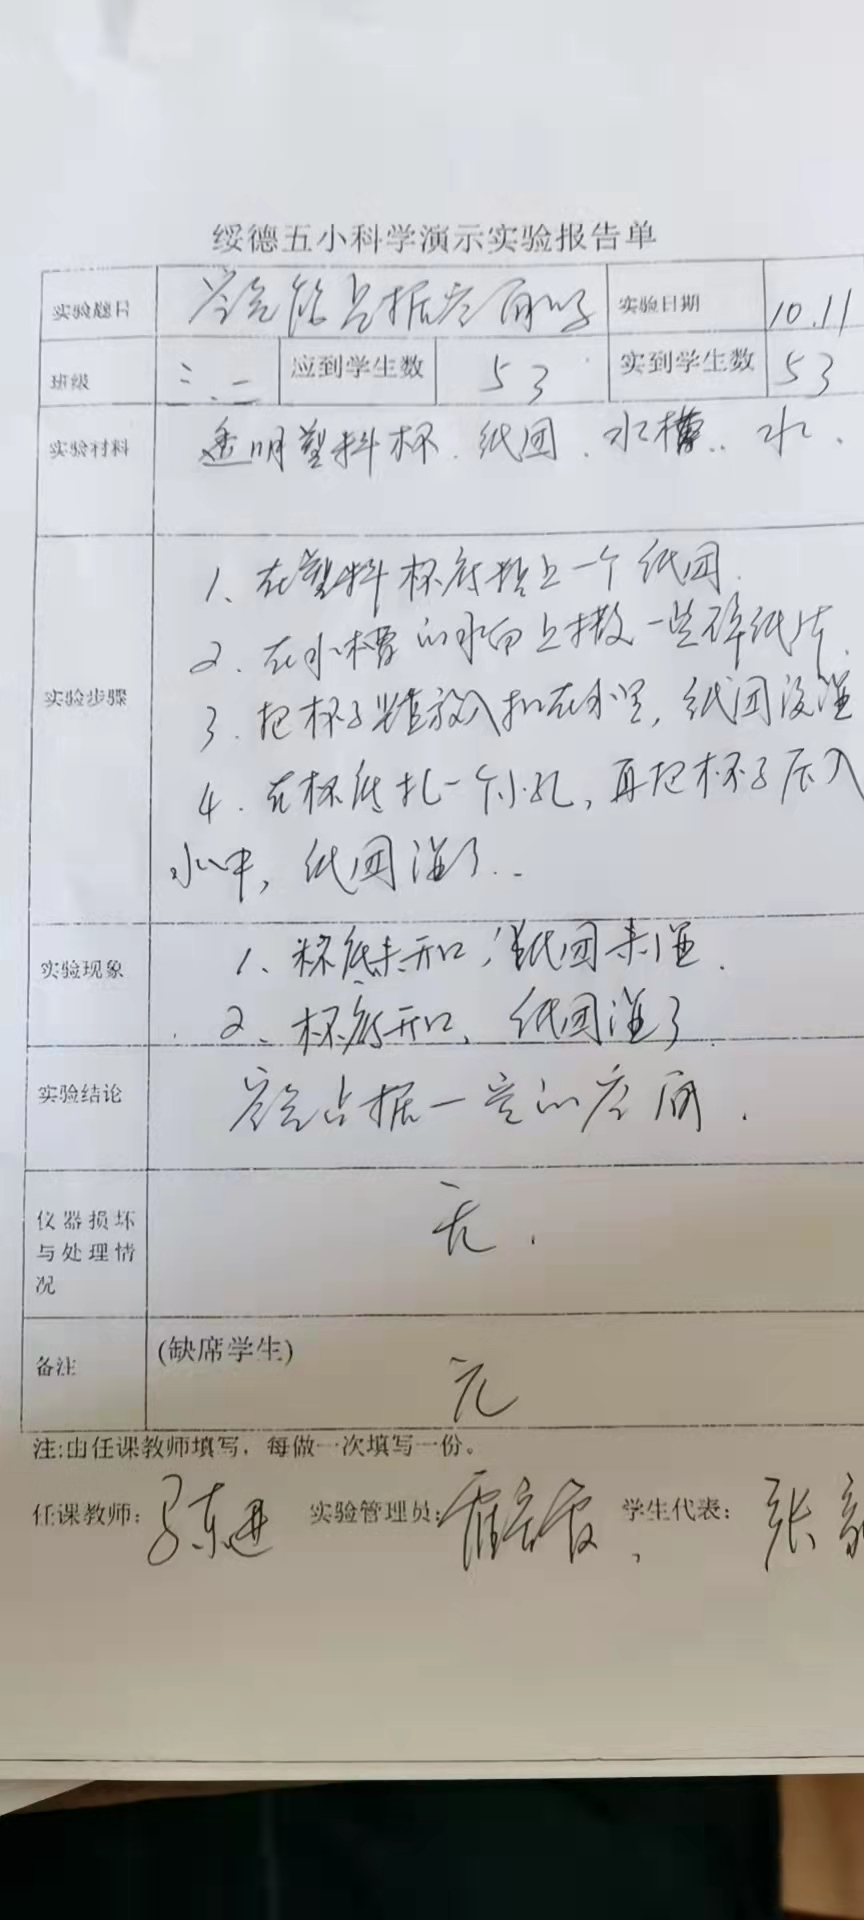 绥德五小科学演示实验报告单
实验题目 空气能占据空间吗 实验日期 10.11
班级 三.二 应到学生数 53 实到学生数 53
实验材料 透明塑料杯、纸团、水槽、水、
实验步骤
1、在塑料杯底粘上一个纸团.
2.在水槽的水面上撒一些碎纸片.
3.把杯子竖直放入扣在水里,纸团没湿
4.在杯底扎一个小孔,再把杯子压入
水中,纸团湿了..
实验现象
1、杯底未开口,纸团未湿.
2、杯底开口,纸团湿了.
实验结论 空气占据一定的空间.
仪器损坏
与处理情
况
无.
备注 (缺席学生)
无
注:由任课教师填写,每做一次填写一份。
任课教师: 马东进 实验管理员: 学生代表: 张